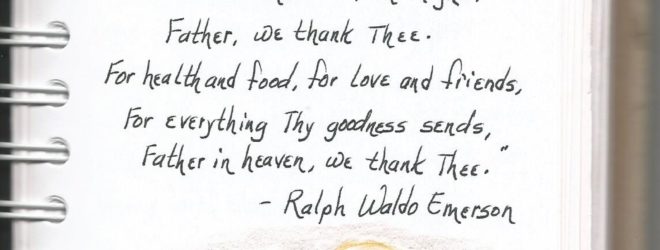 Father, we thank Thee.
For health and food, for love and friends,
For everything Thy goodness sends,
Father in heaven, we thank Thee."
- Ralph Waldo Emerson